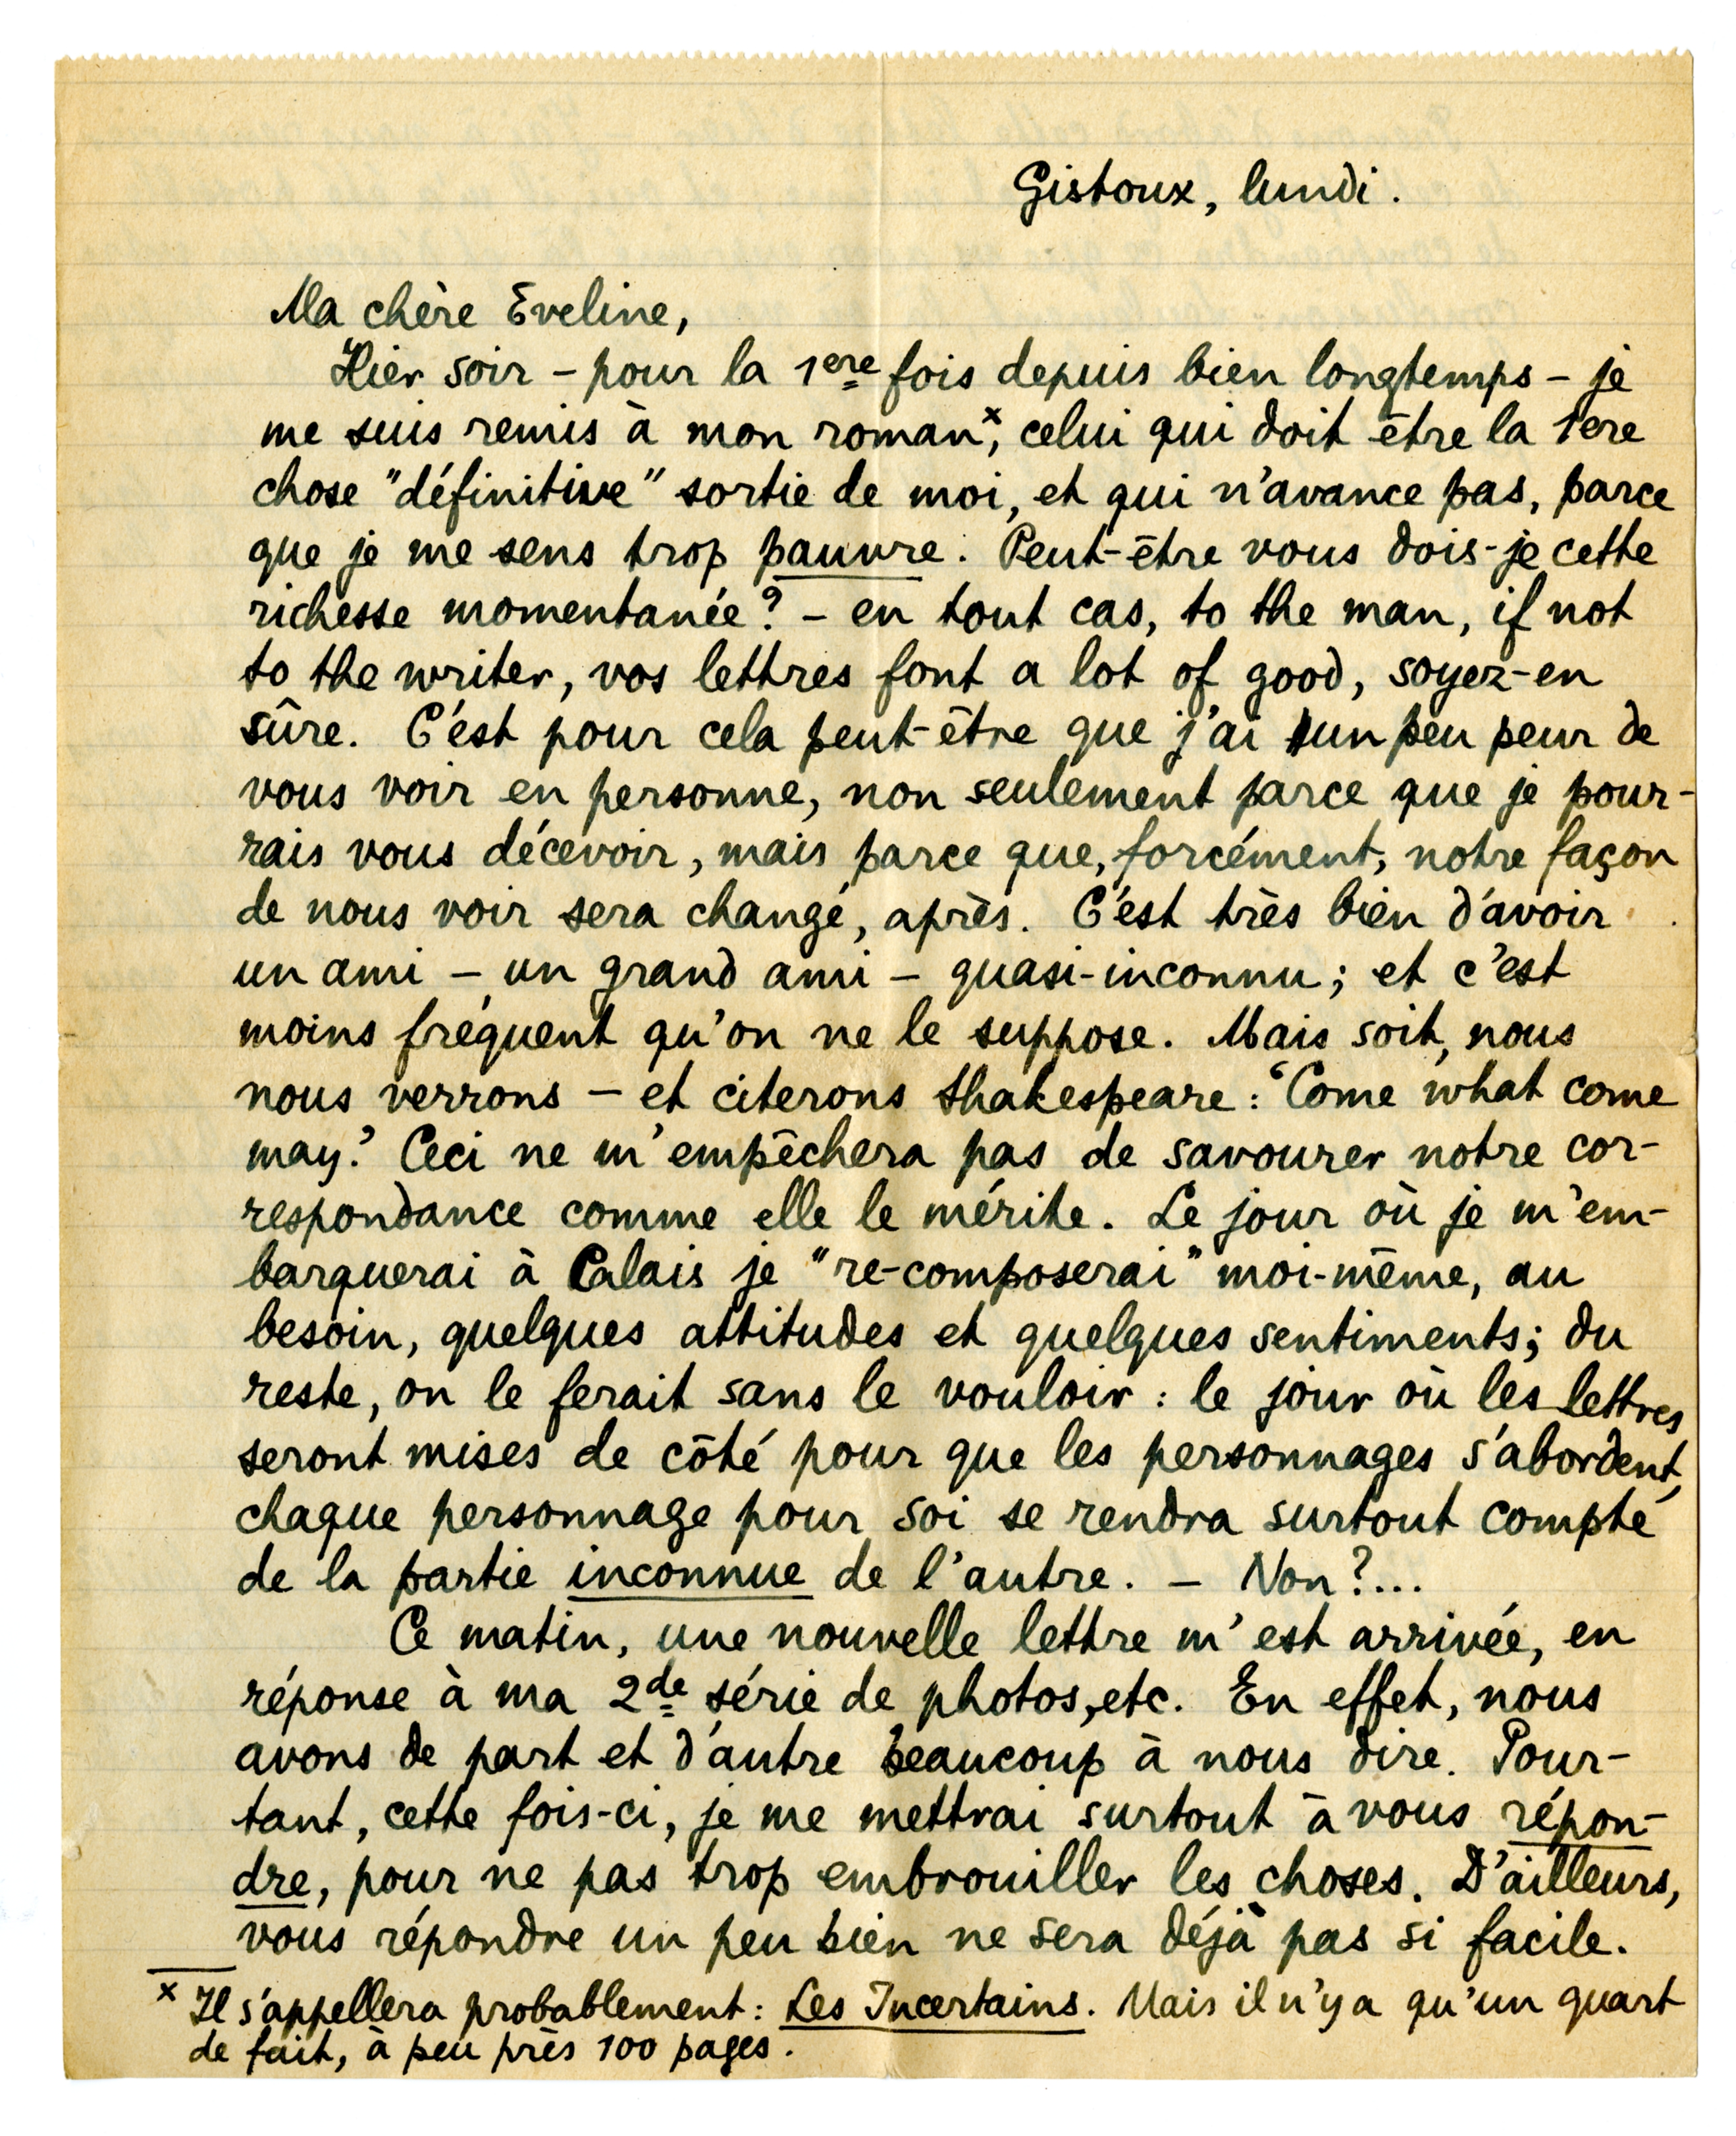 Gistoux, lundi.
Ma chère Eveline,
Hier soir – pour la 1ere fois depuis bien longtemps – je
me suis remis à mon roman x, celui qui doit être la 1ere
chose "définitive" sortie de moi, et qui n'avance pas, parce
que je me sens trop pauvre. Peut-être vous dois-je cette
richesse momentanée? – en tout cas, to the man, if not
to the writer, vos lettres font a lot of good, soyez-en
sûre. C'est pour cela peut-être que j'ai un peu peur de
vous voir en personne, non seulement parce que je pour-
rais vous décevoir, mais parce que, forcément, notre façon
de nous voir sera changé, après. C'est très bien d'avoir
un ami – un grand ami – quasi-inconnu; et c'est
moins fréquent qu'on ne le suppose. Mais soit, nous
nous verrons – et citerons Shakespeare: 'Come what come
may.' Ceci ne m'empêchera pas de savourer notre cor-
respondance comme elle le mérite. Le jour où je m'em-
barquerai à Calais je "re-composerai" moi-même, au
besoin, quelques attitudes et quelques sentiments; du
reste, on le ferait sans le vouloir: le jour où les lettres
seront mises de côté pour que les personnages s'abordent,
chaque personnage pour soi se rendra surtout compte
de la partie inconnue de l'autre. – Non?...
Ce matin, une nouvelle lettre m'est arrivée, en
réponse à ma 2de série de photos, etc. En effet, nous
avons de part et d'autre beaucoup à nous dire. Pour-
tant, cette fois-ci, je me mettrai surtout à vous répon-
dre, pour ne pas trop embrouiller les choses. D'ailleurs,
vous répondre un peu bien ne sera déjà pas si facile.
x Il s'appellera probablement: Les Incertains. Mais il n'y a qu'un quart
de fait, à peu près 100 pages.